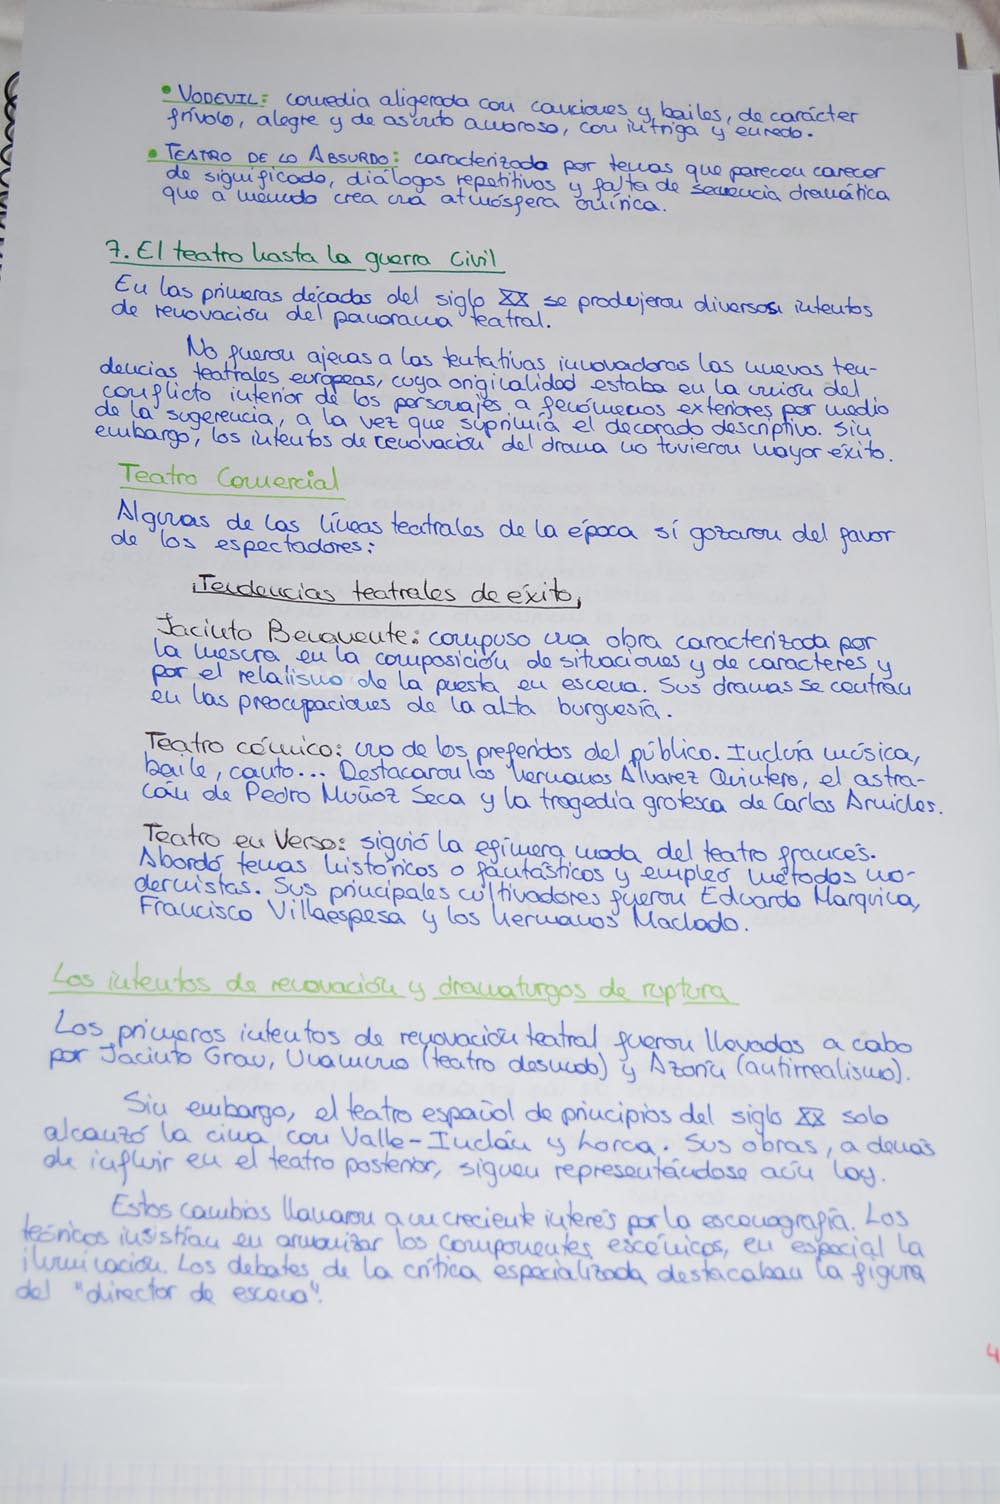 • VODEVIL: comedia aligerada con canciones y bailes, de carácter
frívolo, alegre y de asunto amoroso, con intriga y enredo.
• TEATRO DE LO ABSURDO: caracterizada por temas que parecen carecer
de significado, diálogos repetitivos y falta de secuencia dramática
que a menudo crea una atmósfera onírica.
7. El teatro hasta la guerra Civil
En las primeras décadas del siglo XX se produjeron diversos intentos
de renovación del panorama teatral.
No fueron ajenas a las tentativas innovadoras las nuevas ten-
dencias teatrales europeas, cuya originalidad estaba en la unión del
conflicto interior de los personajes a fenómenos exteriores por medio
de la sugerencia, a la vez que suprimía el decorado descriptivo. Sin
embargo, los intentos de renovación del drama no tuvieron mayor éxito.
Teatro Comercial
Algunas de las líneas teatrales de la época sí gozaron del favor
de los espectadores:
Tendencias teatrales de éxito
Jacinto Benavente: compuso una obra caracterizada por
la mesura en la composición de situaciones y de caracteres y
por el relaiismo de la puesta en escena. Sus dramas se centran
en las preocupaciones de la alta burguesía.
Teatro cómico: uno de los preferidos del público. Incluía música,
baile, canto... Destacaron los hermanos Álvarez Quintero, el astra-
cán de Pedro Muñoz Seca y la tragedia grotesca de Carlos Arniches.
Teatro en Verso: siguió la efímera moda del teatro francés.
Abordó temas históricos o fantásticos y empleó métodos mo-
dernistas. Sus principales cultivadores fueron Eduardo Marquina,
Francisco Villaespesa y los hermanos Machado.
Los intentos de renovación y dramaturgos de ruptura
Los primeros intentos de renovación teatral fueron llevados a cabo
por Jacinto Grau, Unamuno (teatro desnudo) y Azorín (antirrealismo).
Sin embargo, el teatro español de principios del siglo XX solo
alcanzó la cima con Valle-Inclán y Lorca. Sus obras, a demás
de influir en el teatro posterior, siguen representándose aún hoy.
Estos cambios llamaron a un creciente interés por la escenografía. Los
técnicos insistían en armonizar los componentes escénicos, en especial la
iluminación. Los debates de la crítica especializada destacaban la figura
del "director de escena".
4